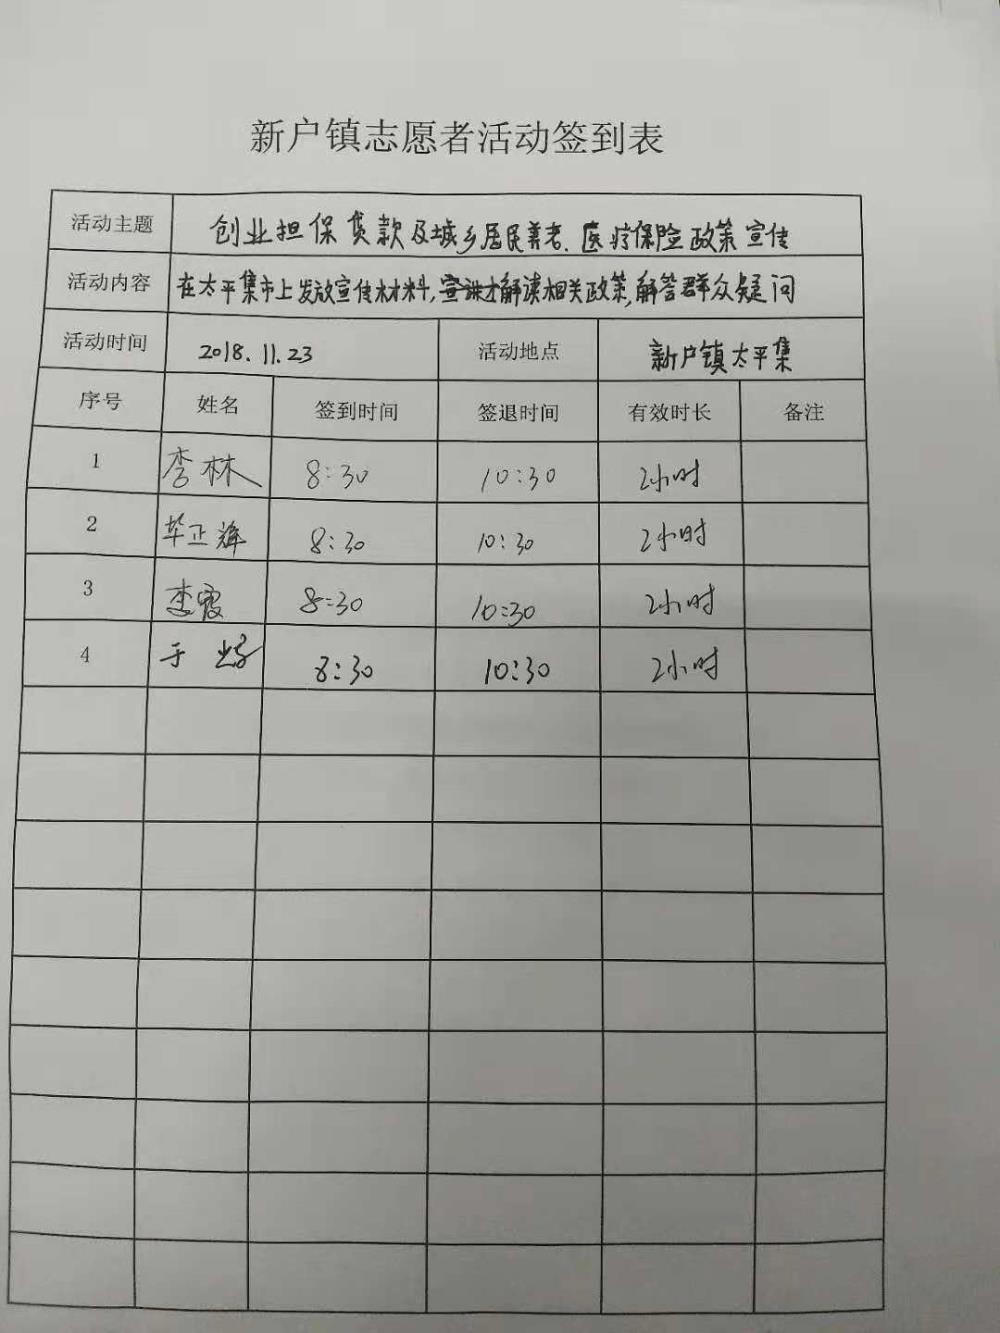 新户镇志愿者活动签到表
活动主题 创业担保贷款及城乡居民养老、医疗保险政策宣传
活动内容 在太平集市上发放宣传材料,解读相关政策,解答群众疑问
活动时间 2018.11.23 活动地点 新户镇太平集
序号 姓名 签到时间 签退时间 有效时长 备注
1 李林 8:30 10:30 2小时
2 毕正辉 8:30 10:30 2小时
3 李霞 8:30 10:30 2小时
4 于 8:30 10:30 2小时